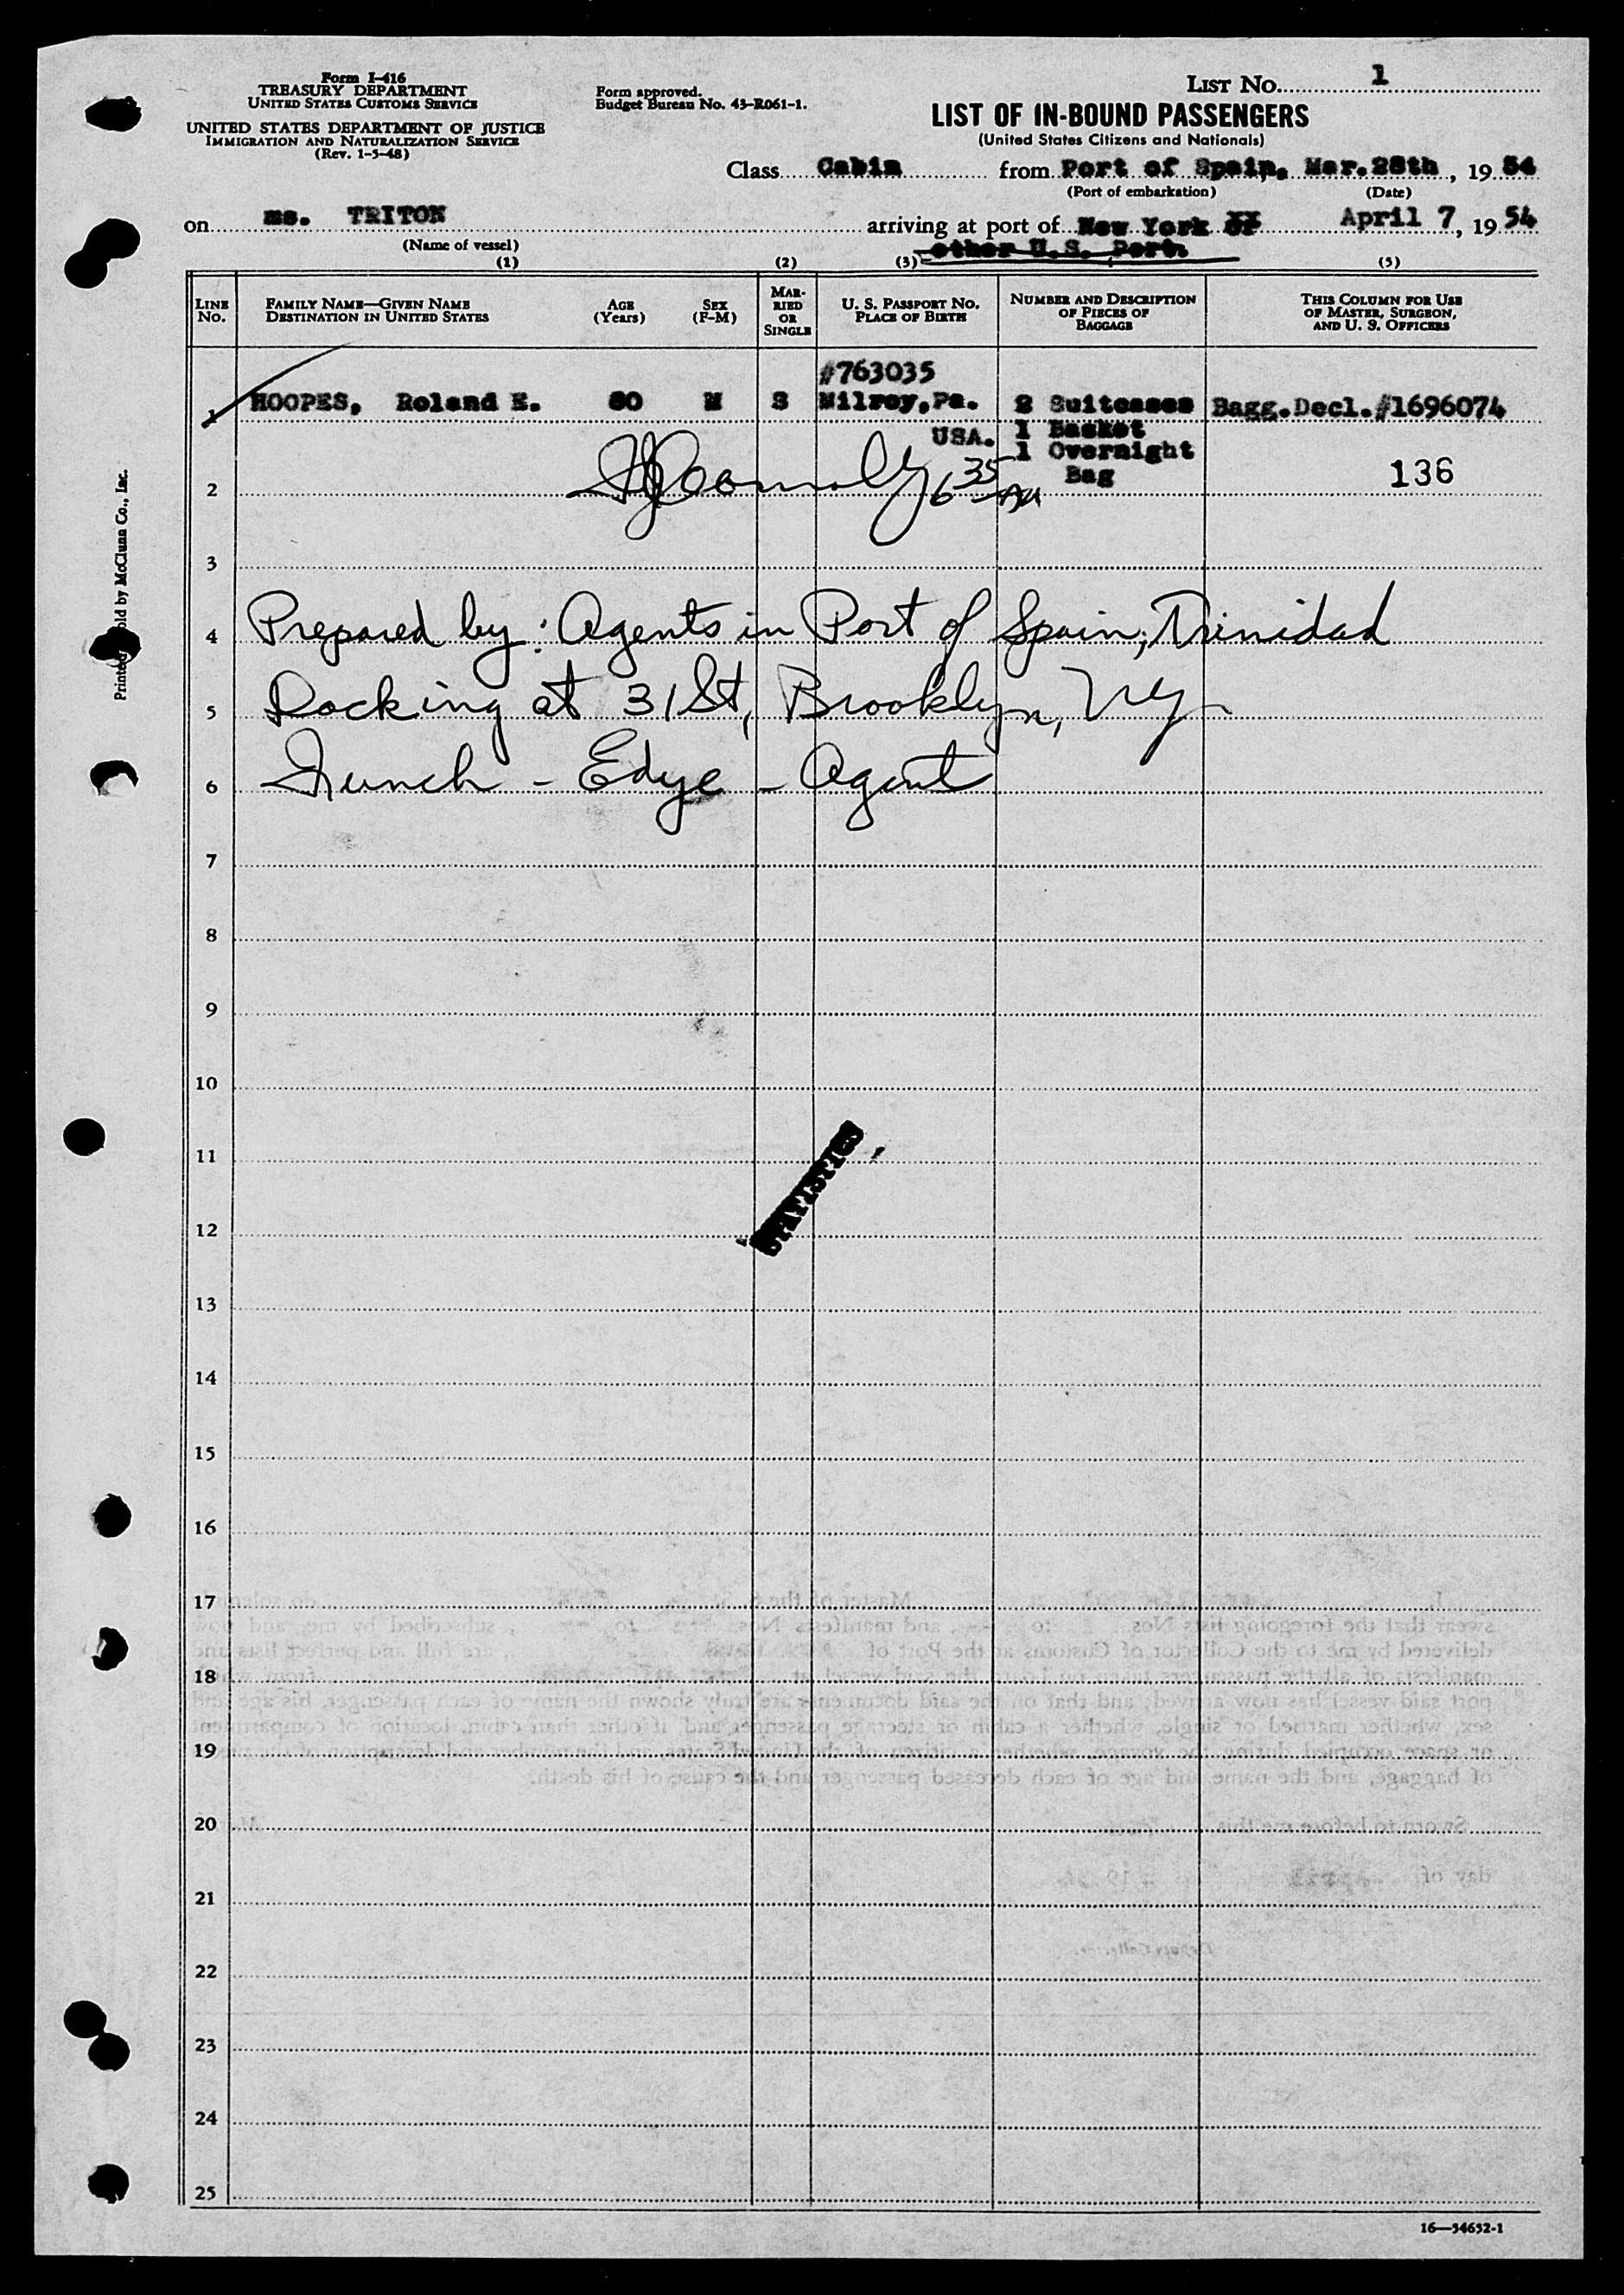 Form I-416
TREASURY DEPARTMENT
UNITED STATES CUSTOMS SERVICE
UNITED STATES DEPARTMENT OF JUSTICE
IMMIGRATION AND NATURALIZATION SERVICE
(Rev. 1-5-48)
Form approved.
Budget Bureau No. 43-R061-1.
LIST NO. 1
LIST OF IN-BOUND PASSENGERS
(United States Citizens and Nationals)
Class Cabin from Port of Spain, Mar.28th, 19 54
(Port of embarkation) (Date)
on ms. TRITON arriving at port of New York or April 7, 19 54
(Name of vessel) other U.S. Port.
(1) (2) (3) (5)
LINE NO. FAMILY NAME—GIVEN NAME DESTINATION IN UNITED STATES AGE (Years) SEX (F-M) MARRIED OR SINGLE U. S. PASSPORT NO. PLACE OF BIRTH NUMBER AND DESCRIPTION OF PIECES OF BAGGAGE THIS COLUMN FOR USE OF MASTER, SURGEON, AND U. S. OFFICERS
#763035
1 HOOPES, Roland E. M S Milroy,Pa. 2 Suitcases Bagg.Decl.#1696074
USA. 1 Basket
1 Overnight
2 6 35 AM Bag 136
3
4 Prepared by: Agents in Port of Spain, Trinidad
5 Docking at 31 St, Brooklyn, NY
6 Funch - Edye - Agent
7
8
9
10
11
STATISTICS
12
13
14
15
16
17
18
19
20
21
22
23
24
25
16—54652-1